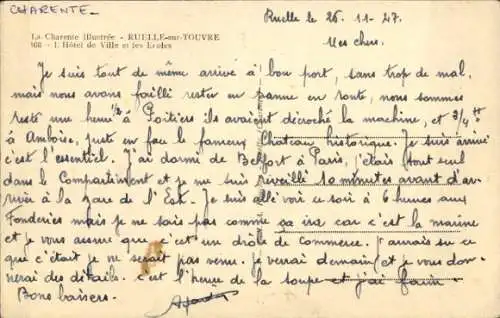 CHARENTE.
La Charente Illustrée - RUELLE-sur-TOUVRE
168 - L'Hôtel de Ville et les Ecoles
Ruelle le 26. 11. 47
Mes chers.
Je suis tout de même arrivé à bon port, sans trop de mal,
mais nous avons failli rester en panne en route, nous sommes
resté une heure 1/2 à Poitiers ils avaient décroché la machine, et 3/4 H
à Amboise, juste en face le fameux Chateau historique. Je suis arrivé
c'est l'essentiel. J'ai dormi de Belfort à Paris, j'étais tout seul
dans le Compartiment et je me suis réveillé 10 minutes avant d'ar-
river à la gare de l'Est. Je suis allé voir ce soir à 6 heures aux
Fonderies mais je ne sais pas comme ça ira car c'est la marine
et je vous assure que c'est un drôle de Commerce. J'aurais su ce
que c'était je ne serait pas venu. Je verrai demain et je vous don-
nerai des détails. C'est l'heure de la soupe et j'ai faim.
Bons baisers.